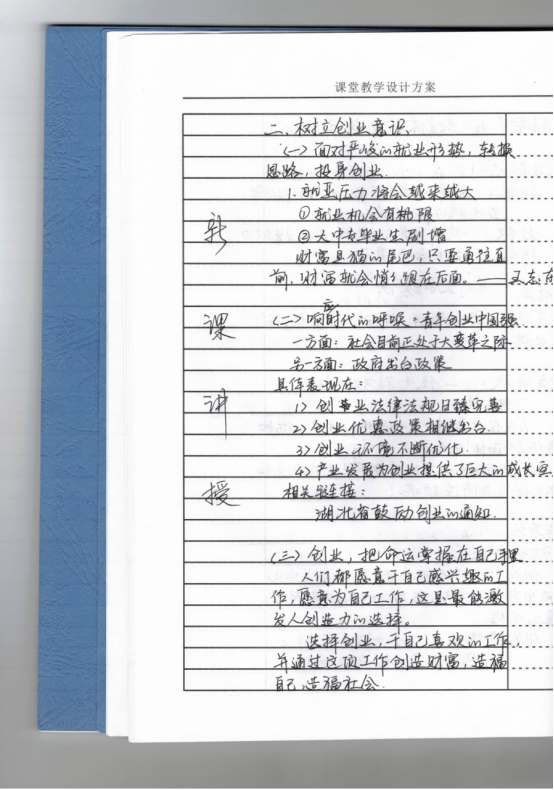 课堂教学设计方案
二、树立创业意识
(一) 面对严峻的就业形势，转换
思路，投身创业.
1. 就业压力将会越来越大
① 就业机会有期限
② 大中专毕业生剧增
财富是猫的尾巴，只要勇往直
前，财富就会悄悄跟在后面。——王志东
(二) 响应时代的呼唤：青年创业中国强
一方面：社会目前正处于大变革之际
另一方面：政府出台政策
具体表现在：
1) 创业法律法规日臻完善
2) 创业优惠政策相继出台
3) 创业环境不断优化
4) 产业发展为创业提供了巨大的成长空
相关链接：
湖北省鼓励创业的通知
(三) 创业，把命运掌握在自己手里
人们都愿意干自己感兴趣的工
作，愿意为自己工作，这是最能激
发人创造力的选择。
选择创业，干自己喜欢的工作，
并通过这项工作创造财富，造福
自己，造福社会.
新
课
讲
授